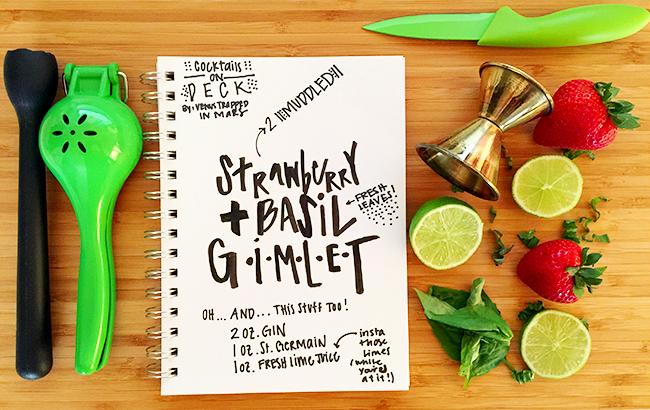 COCKTAILS
ON
DECK
BY: VENUS TRAPPED
IN MARS
2 !!!MUDDLED!!!
STRAWBERRY
+ BASIL
FRESH
LEAVES!
G·I·M·L·E·T
OH... AND... THIS STUFF TOO!
2 OZ. GIN
1 OZ. ST. GERMAIN
1 OZ. FRESH LIME JUICE
insta
those
limes
(while
you're
at it!)